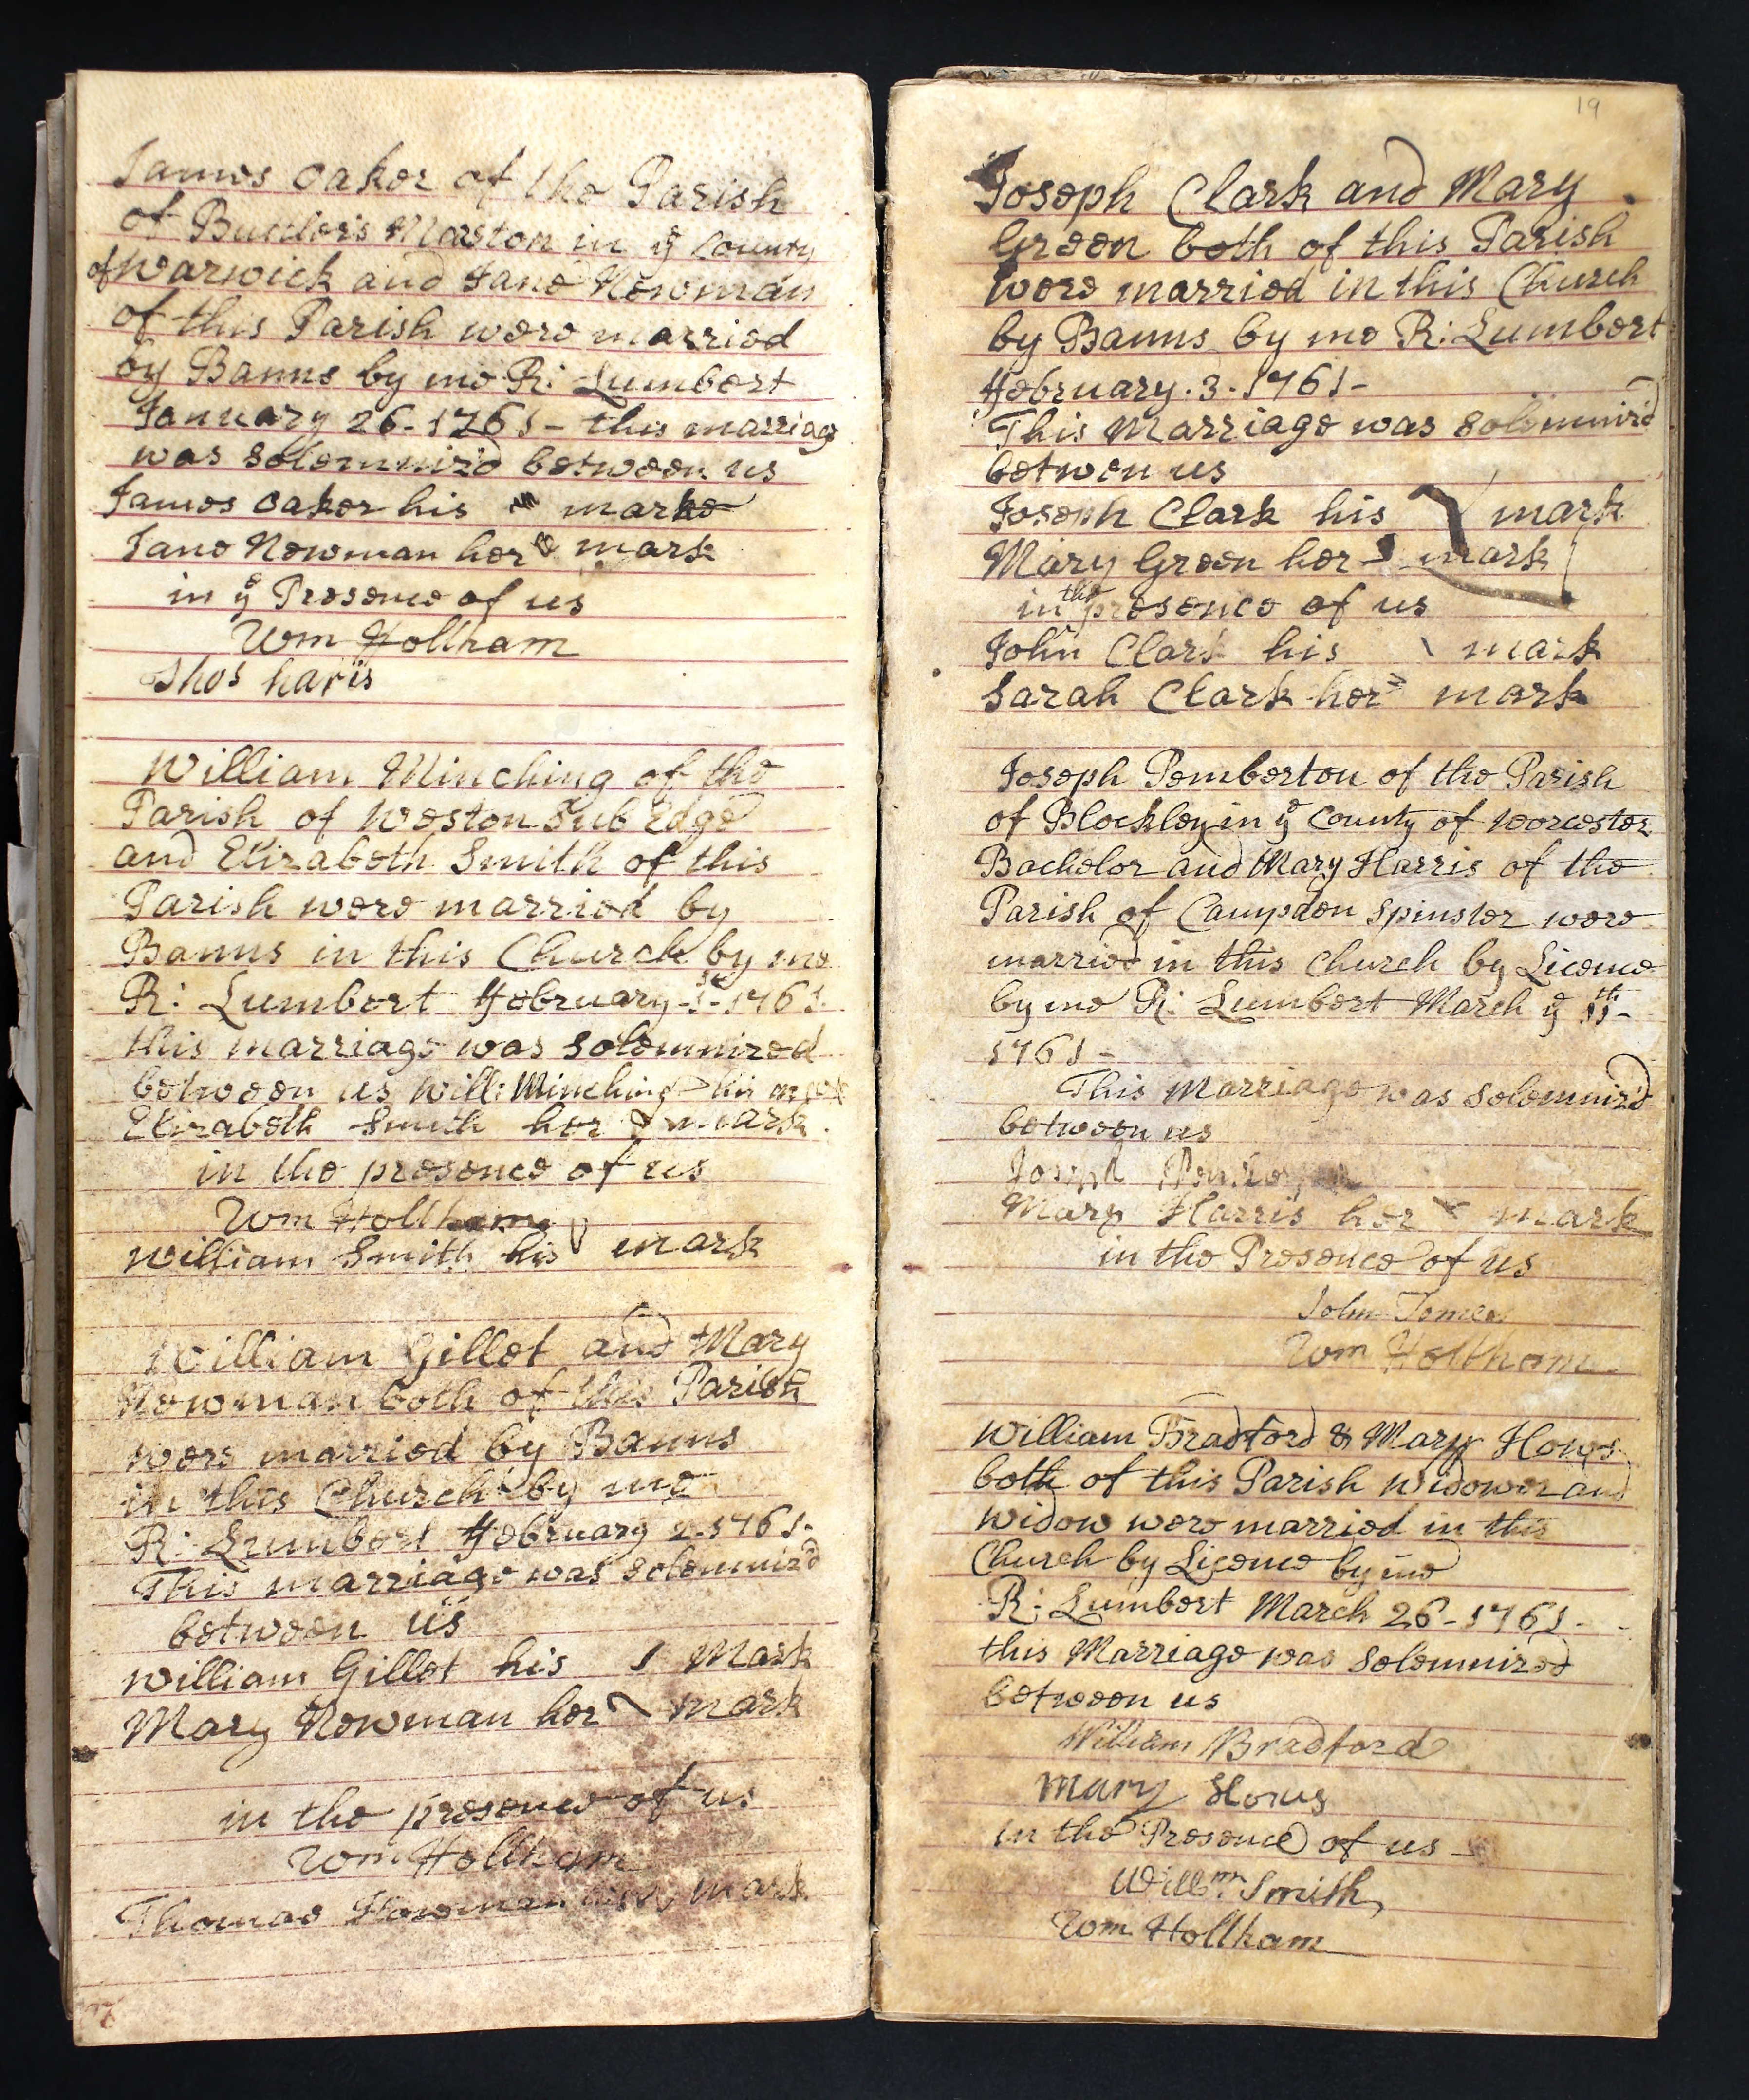 James Oaker of the Parish
of Buttlers Marston in ye County
of Warwick and Jane Newman
of this Parish were married
by Banns by me R: Lumbert
January 26 - 1761 - this marriage
was solemniz'd between us
James Oaker his marke
Jane Newman her mark
in ye Presence of us
Wm Holtham
Thos haris
William Minching of the
Parish of Weston Sub Edge
and Elizabeth Smith of this
Parish were married by
Banns in this Church by me
R: Lumbert February - 1st - 1761
this marriage was solemnized
between us Will: Minching his mark
Elizabeth Smith her mark
in the presence of us
Wm Holtham
William Smith his mark
William Gillet and Mary
Newman both of this Parish
were married by Banns
in this Church by me
R: Lumbert February 2 - 1761 -
This marriage was solemniz'd
between us
William Gillet his mark
Mary Newman her mark
in the presence of us
Wm Holtham
Thomas mark
19
Joseph Clark and Mary
Green both of this Parish
were married in this Church
by Banns by me R: Lumbert
February . 3 - 1761 -
This Marriage was solemniz'd
betwen us
Joseph Clark his mark
Mary Green her mark
in the presence of us
John Clark his mark
Sarah Clark her mark
Joseph Pemberton of the Parish
of Blockley in ye County of Worcester
Bachelor and Mary Harris of the
Parish of Campden Spinster were
married in this Church by Licence
by me R: Lumbert March ye 11th -
1761 -
This Marriage was solemniz'd
between us
Joseph
Mary Harris her mark
in the Presence of us
John Tomes
Wm Holtham
William Bradford & Mary Hows
both of this Parish Widower and
Widow were married in this
Church by Licence by me
R: Lumbert March 26 - 1761 -
this Marriage was solemnized
between us
William Bradford
Mary Hows
in the Presence of us
Willm Smith
Wm Holtham